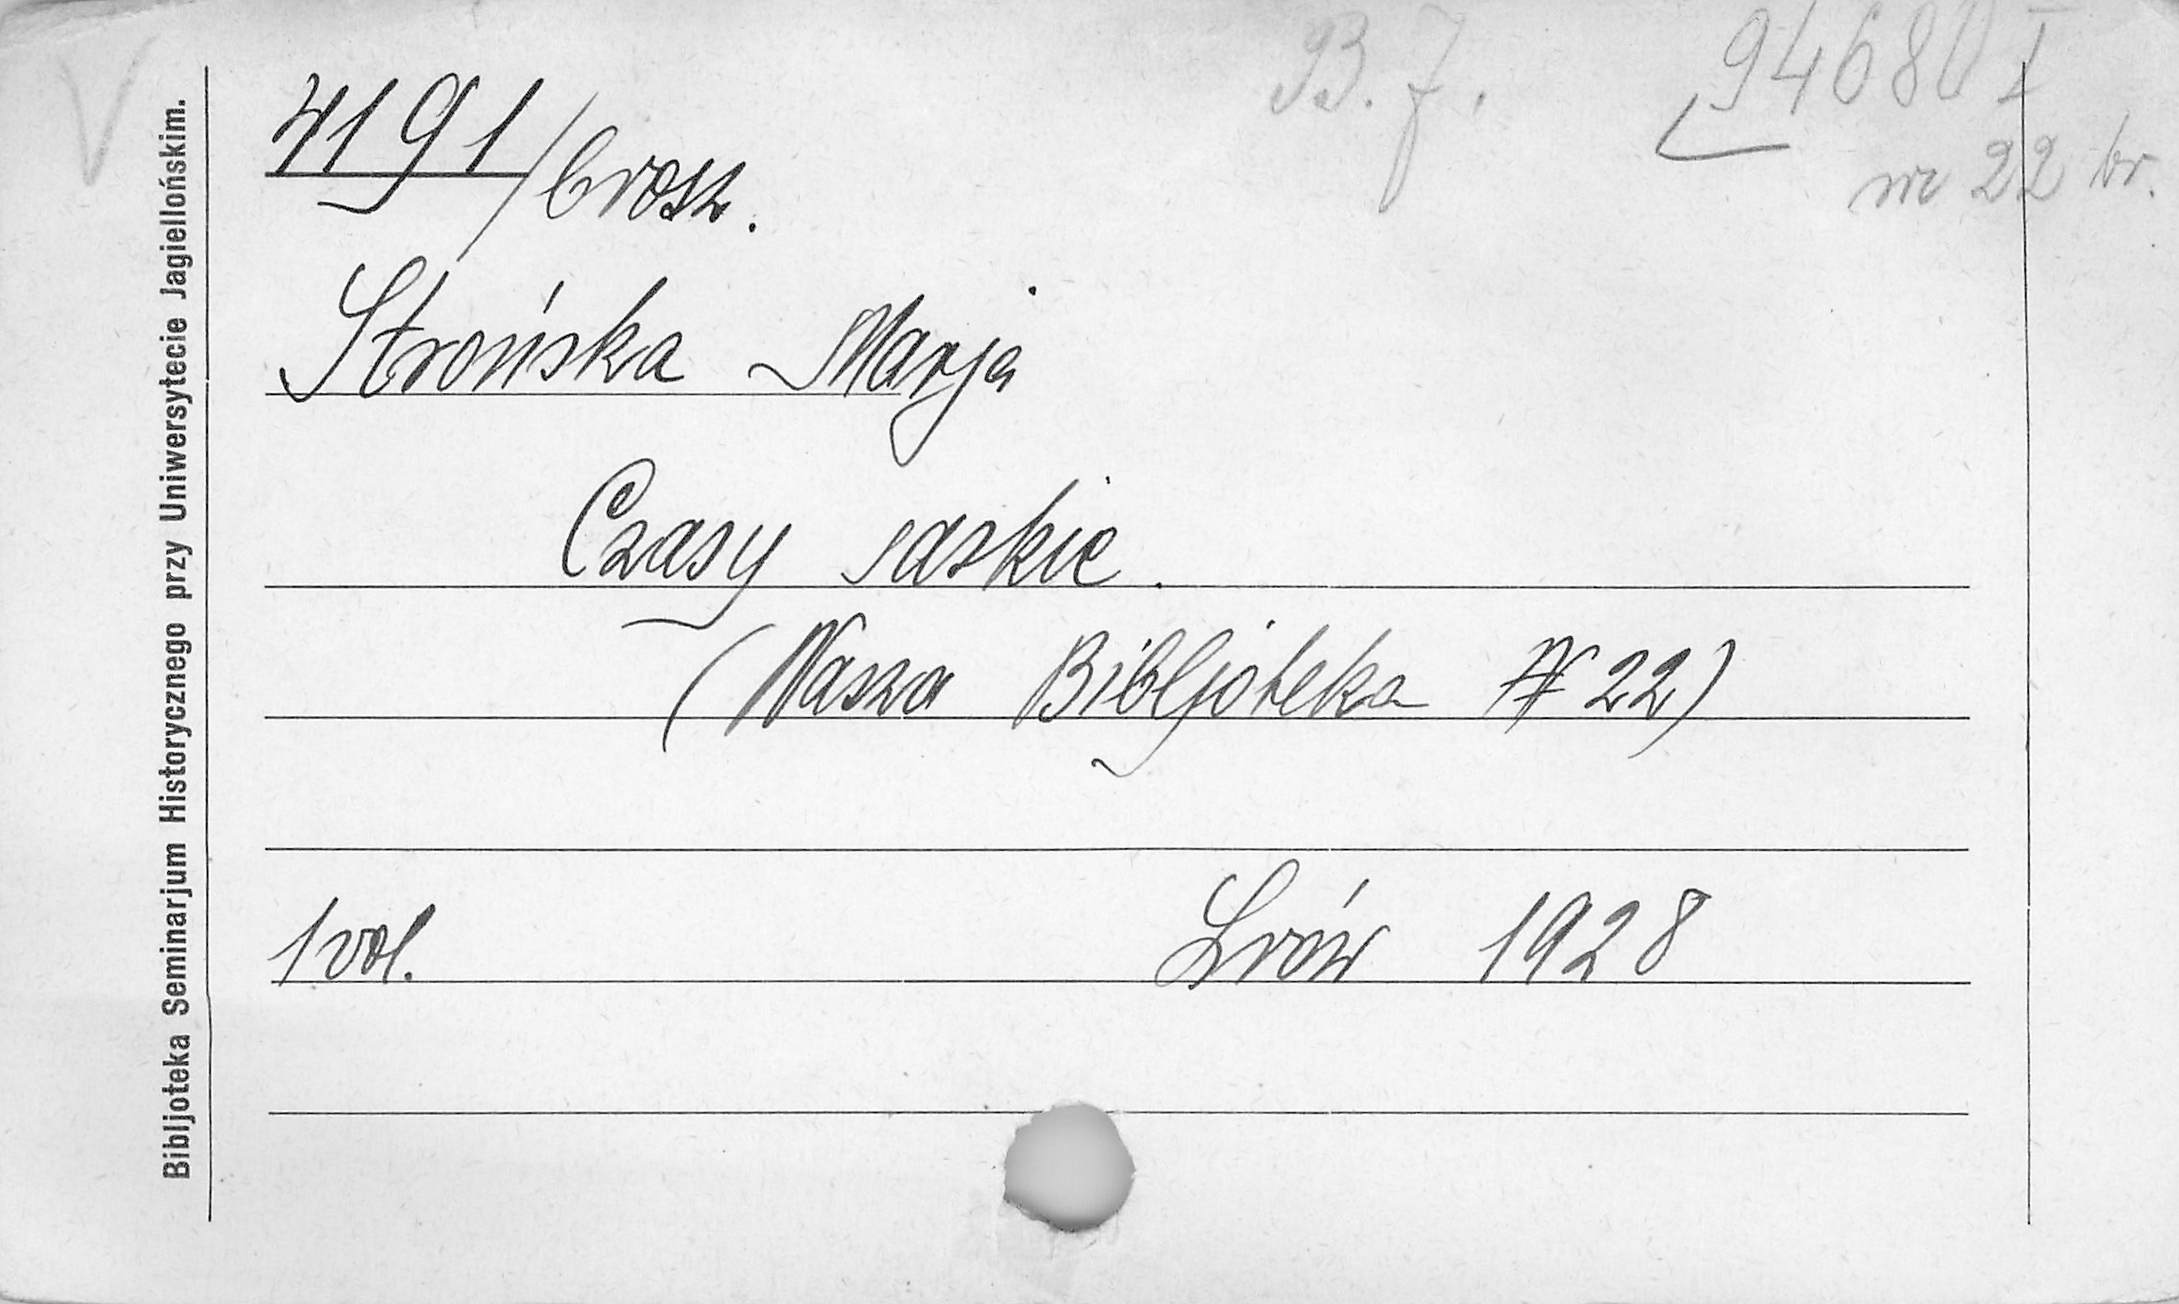 B. J. 94680 I
nr 22 br.
4191/brosz.
Strońska Marja
Czasy saskie.
(Nasza Bibljoteka № 22)
1 vol. Lwów 1928
Bibljoteka Seminarjum Historycznego przy Uniwersytecie Jagiellońskim.